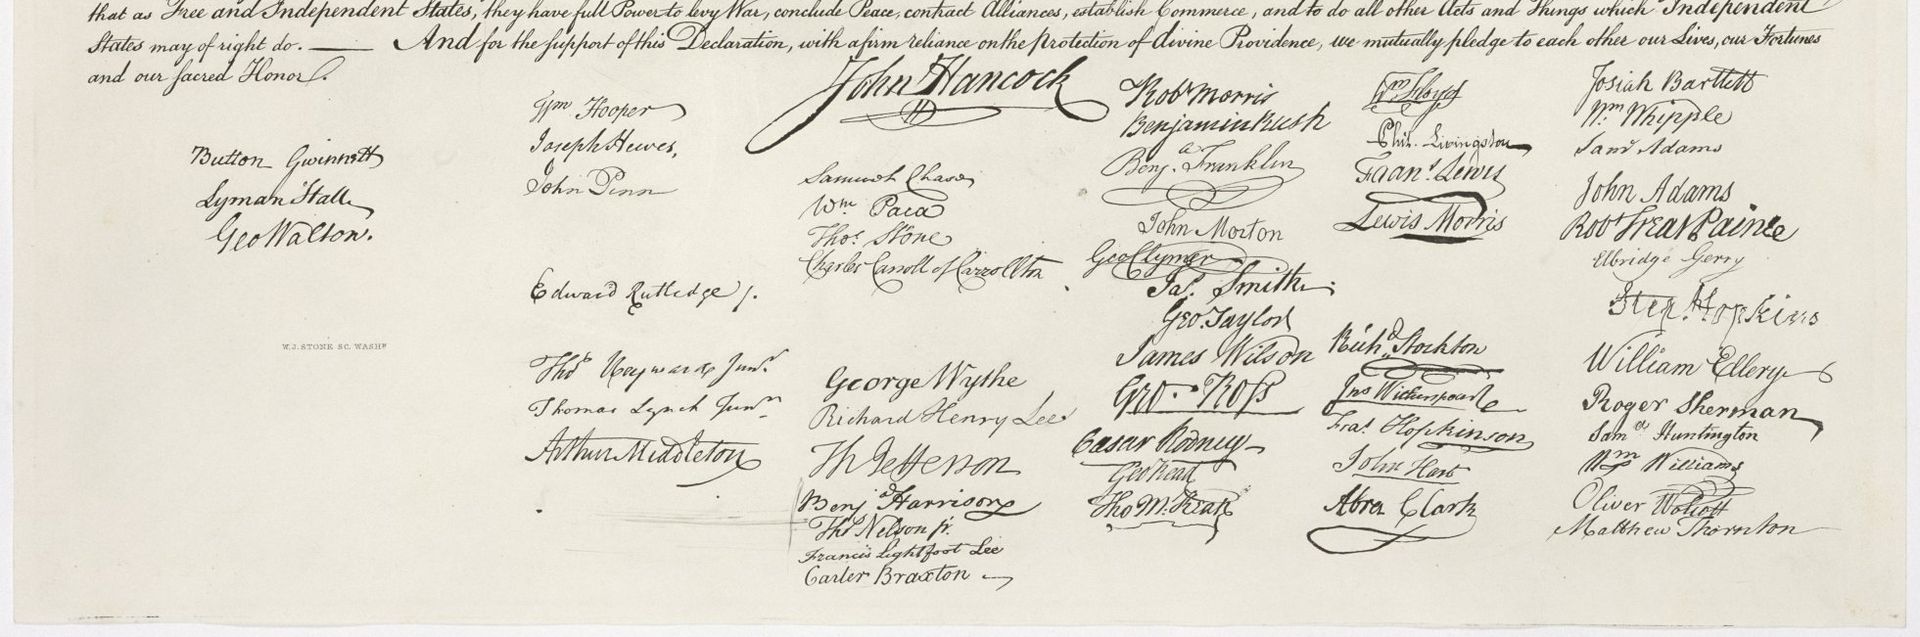 that as Free and Independent States, they have full Power to levy War, conclude Peace, contract Alliances, establish Commerce, and to do all other Acts and Things which Independent
States may of right do. — And for the support of this Declaration, with a firm reliance on the protection of divine Providence, we mutually pledge to each other our Lives, our Fortunes
and our sacred Honor.
Button Gwinnett
Lyman Hall
Geo Walton.
W.J. STONE SC. WASHN
Wm Hooper
Joseph Hewes,
John Penn
Edward Rutledge /.
Thos Heyward Junr.
Thomas Lynch Junr.
Arthur Middleton
John Hancock
Samuel Chase
Wm. Paca
Thos. Stone
Charles Carroll of Carrollton
George Wythe
Richard Henry Lee
Th Jefferson
Benj Harrison
Thos Nelson jr.
Francis Lightfoot Lee
Carter Braxton
Robt Morris
Benjamin Rush
Benja. Franklin
John Morton
Geo Clymer
Jas. Smith
Geo. Taylor
James Wilson
Geo. Ross
Caesar Rodney
Geo Read
Tho M:Kean
Wm Floyd
Phil. Livingston
Frans. Lewis
Lewis Morris
Richd. Stockton
Jno Witherspoon
Fras. Hopkinson
John Hart
Abra Clark
Josiah Bartlett
Wm. Whipple
Saml Adams
John Adams
Robt Treat Paine
Elbridge Gerry
Step. Hopkins
William Ellery
Roger Sherman
Samel Huntington
Wm Williams
Oliver Wolcott
Matthew Thornton